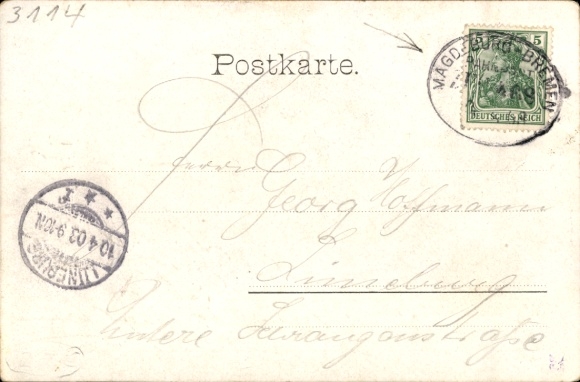 3114
MAGDEBURG-BREMEN
5
DEUTSCHES REICH
Postkarte.
Herrn
Georg Hoffmann
Lüneburg
Hintere
LUNEBURG
10.4.03.9-10N.